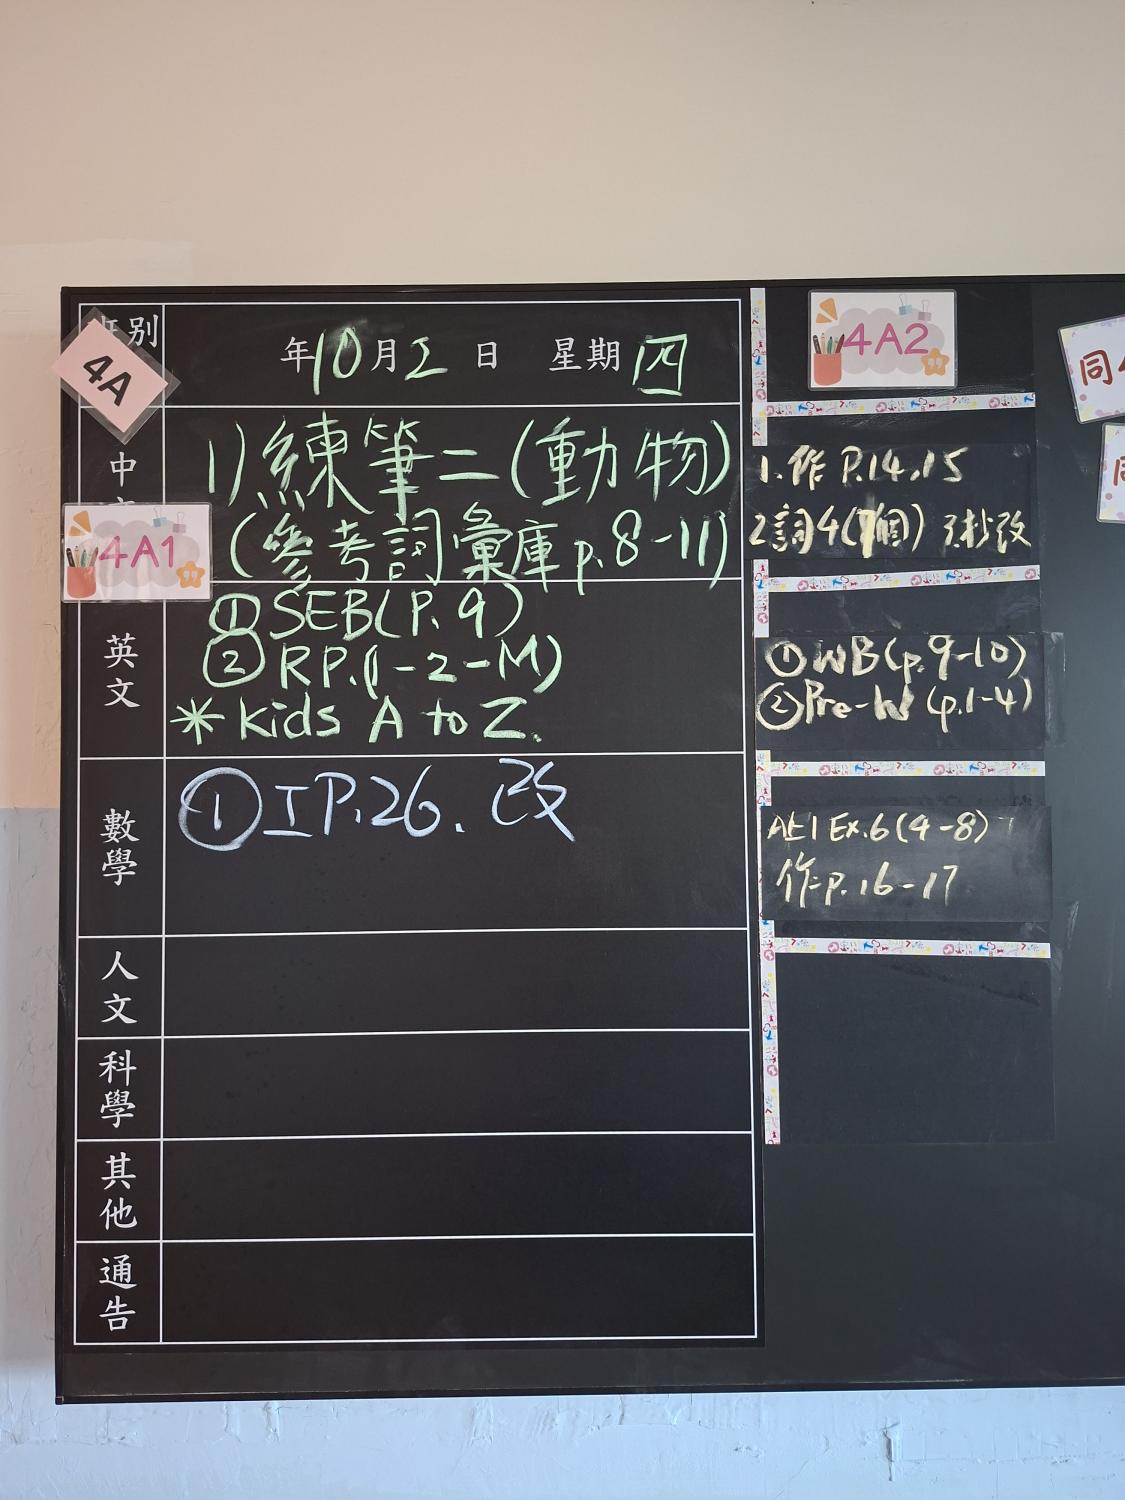 別
4A
年10月2日 星期四
4A2
同
中
4A1
1)練筆二(動物)
(參考詞彙庫p.8-11)
1.作P.14,15
2詞4(7個) 抄改
英文
①SEB(P.9)
②RP.(1-2-M)
*Kids A to Z.
①WB(p.9-10)
②Pre-W(p.1-4)
數學
①工P.26.改
Ex.6(4-8)
作p.16-17
人文
科學
其他
通告